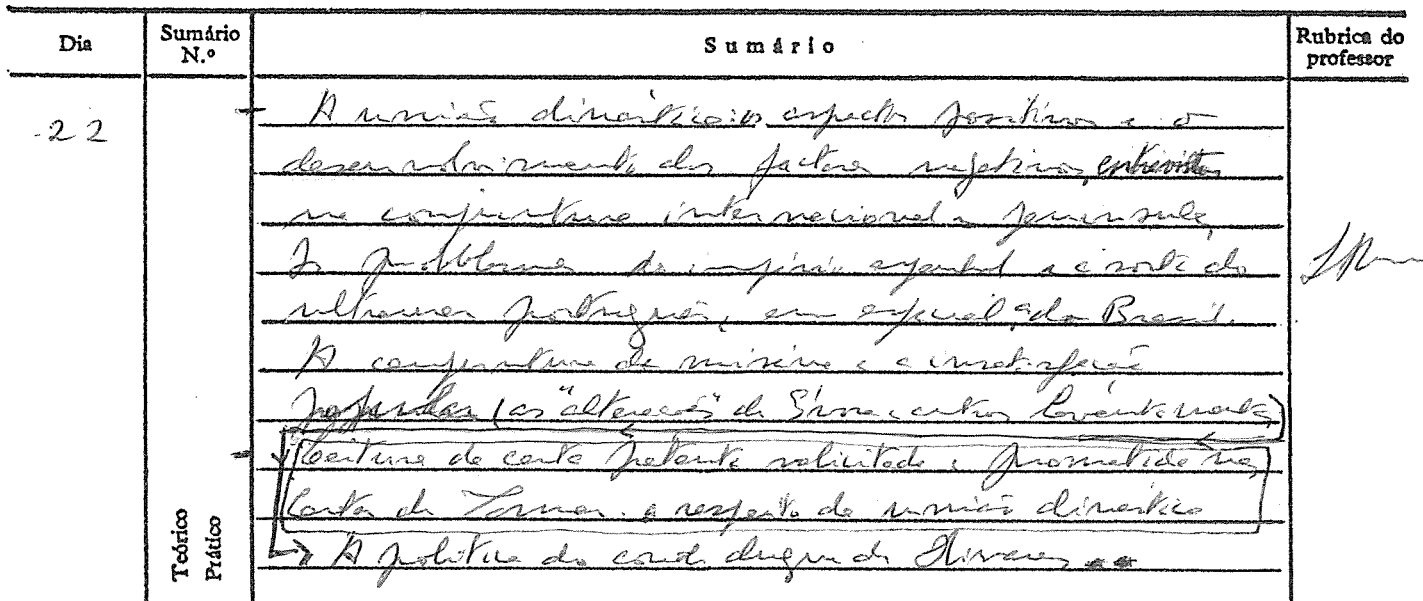 Dia
Sumário N.º
Sumário
Rubrica do professor
22
A união dinástica: os aspectos positivos e o
desenvolvimento dos factores negativos, entrevistos
na conjuntura internacional e peninsular
Os problemas do império espanhol e a sorte do
ultramar português, em especial do Brasil.
A conjuntura de miséria e a insatisfação
popular (as "alterações" de Évora e outros levantamentos)
Leitura da carta patente solicitada e prometida nas
Cortes de Tomar a respeito da união dinástica
A política do conde duque de Olivares
Teórico
Prático